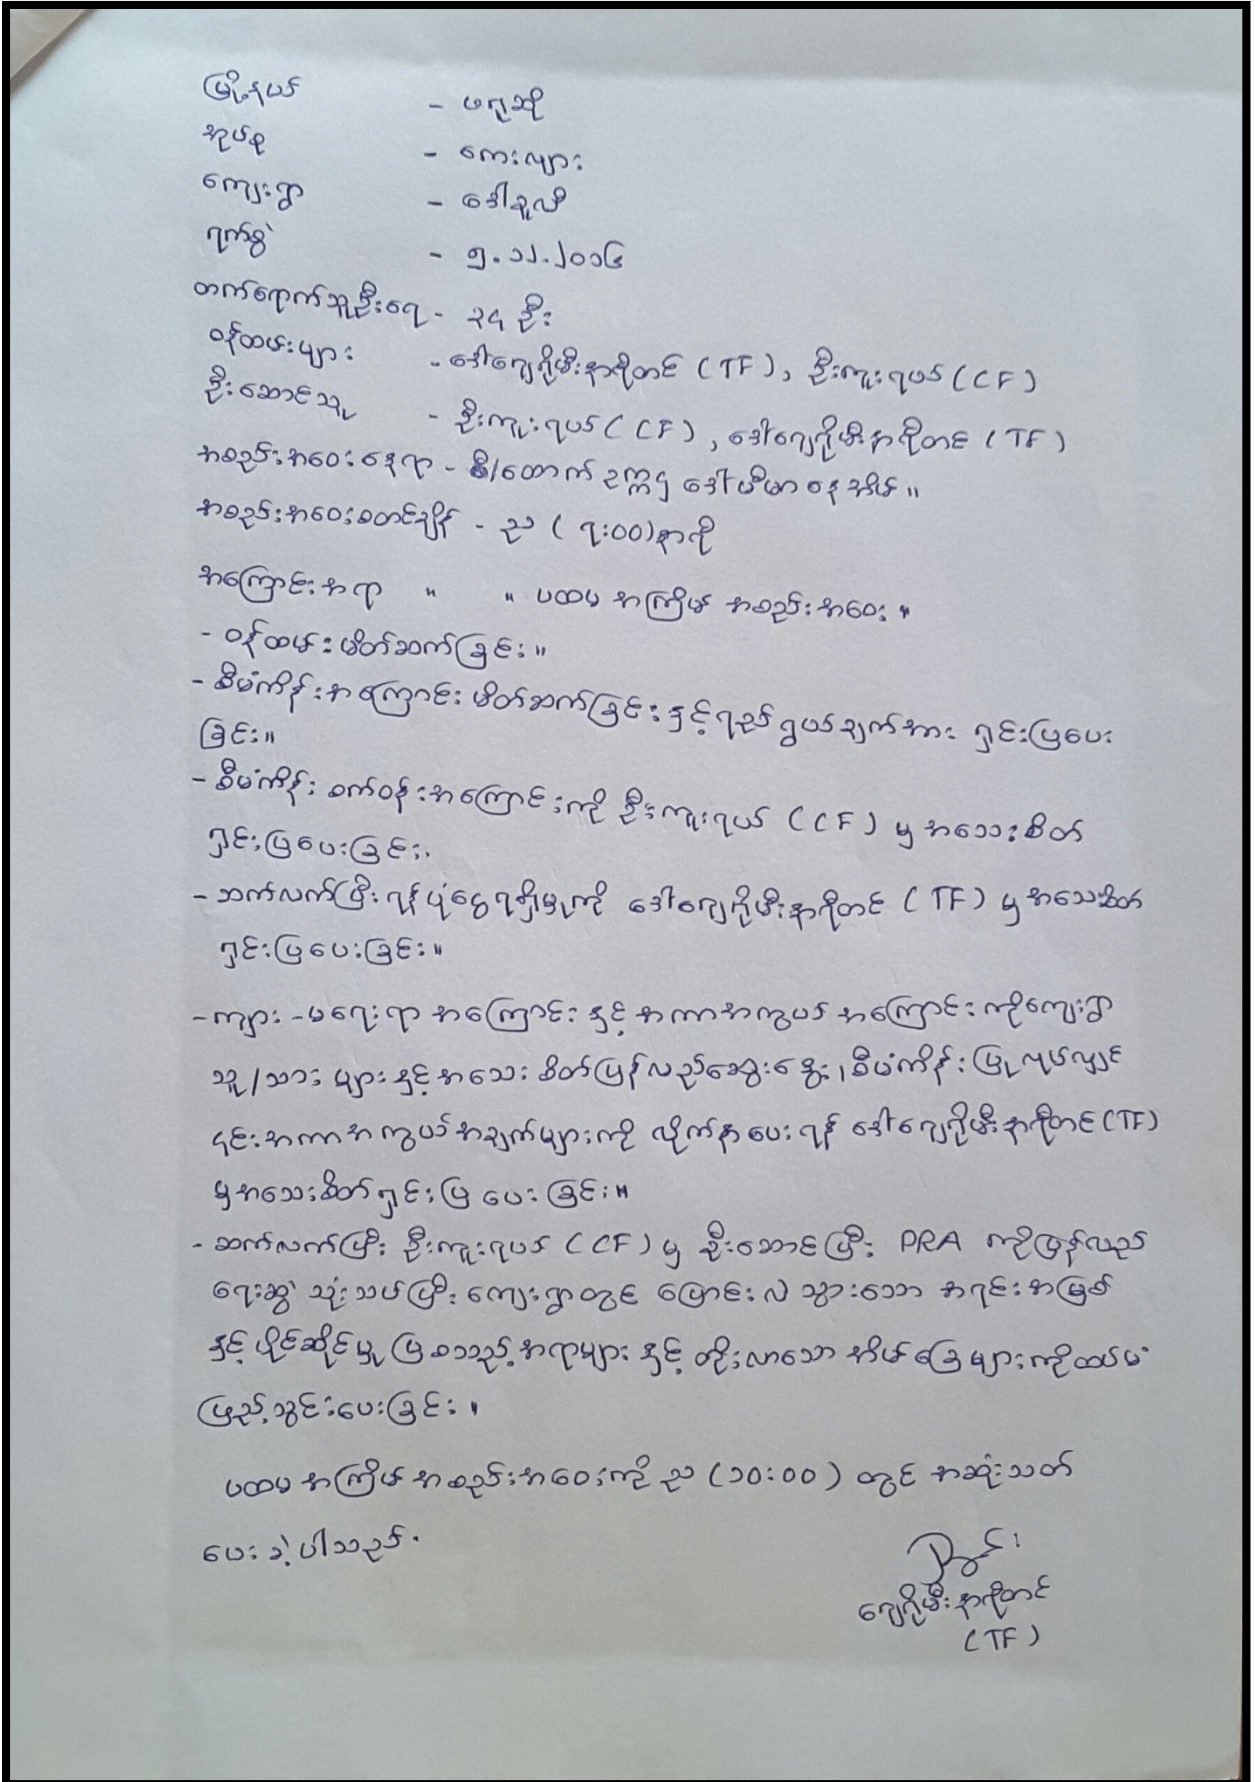 မြို့နယ် - ဖရူဆို
အုပ်စု - ကေးလျား
ကျေးရွာ - ဒေါ်ခူလီ
ရက်စွဲ - ၅.၁၂.၂၀၁၆
တက်ရောက်သူဦးရေ - ၃၄ ဦး
ဝန်ထမ်းများ - ဒေါ်ဂျေရိုမီးနာရီတင် (TF), ဦးကူးရယ် (CF)
ဦးဆောင်သူ - ဦးကူးရယ် (CF), ဒေါ်ဂျေရိုမီးနာရီတင် (TF)
အစည်းအဝေးနေရာ - စီ/ထောက် ဥက္ကဌ ဒေါ်မီမာ နေအိမ်။
အစည်းအဝေးစတင်ချိန် - ည (၇:၀၀) နာရီ
အကြောင်းအရာ ။ ။ ပထမ အကြိမ် အစည်းအဝေး။
- ဝန်ထမ်း မိတ်ဆက်ခြင်း။
- စီမံကိန်းအကြောင်း မိတ်ဆက်ခြင်း နှင့် ရည်ရွယ်ချက်အား ရှင်းပြပေး
ခြင်း။
- စီမံကိန်း စက်ဝန်းအကြောင်းကို ဦးကူးရယ် (CF) မှ အသေးစိတ်
ရှင်းပြပေးခြင်း.
- ဆက်လက်ပြီး ရန်ပုံငွေရရှိမှုကို ဒေါ်ဂျေရိုမီးနာရီတင် (TF) မှ အသေးစိတ်
ရှင်းပြပေးခြင်း။
- ကျား - မရေးရာ အကြောင်း နှင့် အကာအကွယ် အကြောင်း ကို ကျေးရွာ
သူ/သား များနှင့် အသေးစိတ်ပြန်လည်ဆွေးနွေး၊ စီမံကိန်း ပြုလုပ်လျှင်
၎င်းအကာအကွယ်အချက်များကို လိုက်နာပေးရန် ဒေါ်ဂျေရိုမီးနာရီတင် (TF)
မှ အသေးစိတ် ရှင်းပြပေးခြင်း။
- ဆက်လက်ပြီး ဦးကူးရယ် (CF) မှ ဦးဆောင်ပြီး PRA ကိုပြန်လည်
ရေးဆွဲ သုံးသပ်ပြီး ကျေးရွာတွင် ပြောင်းလဲ သွားသော အရင်းအမြစ်
နှင့် ပိုင်ဆိုင်မှု ပြစာသည့် အရာများ နှင့် တိုးလာသော အိမ်ခြေများကို ထပ်မံ
ဖြည့်သွင်းပေးခြင်း။
ပထမ အကြိမ် အစည်းအဝေးကို ည (၁၀:၀၀) တွင် အဆုံးသတ်
ပေးခဲ့ပါသည်.
ဂျေရိုမီးနာရီတင်
(TF)